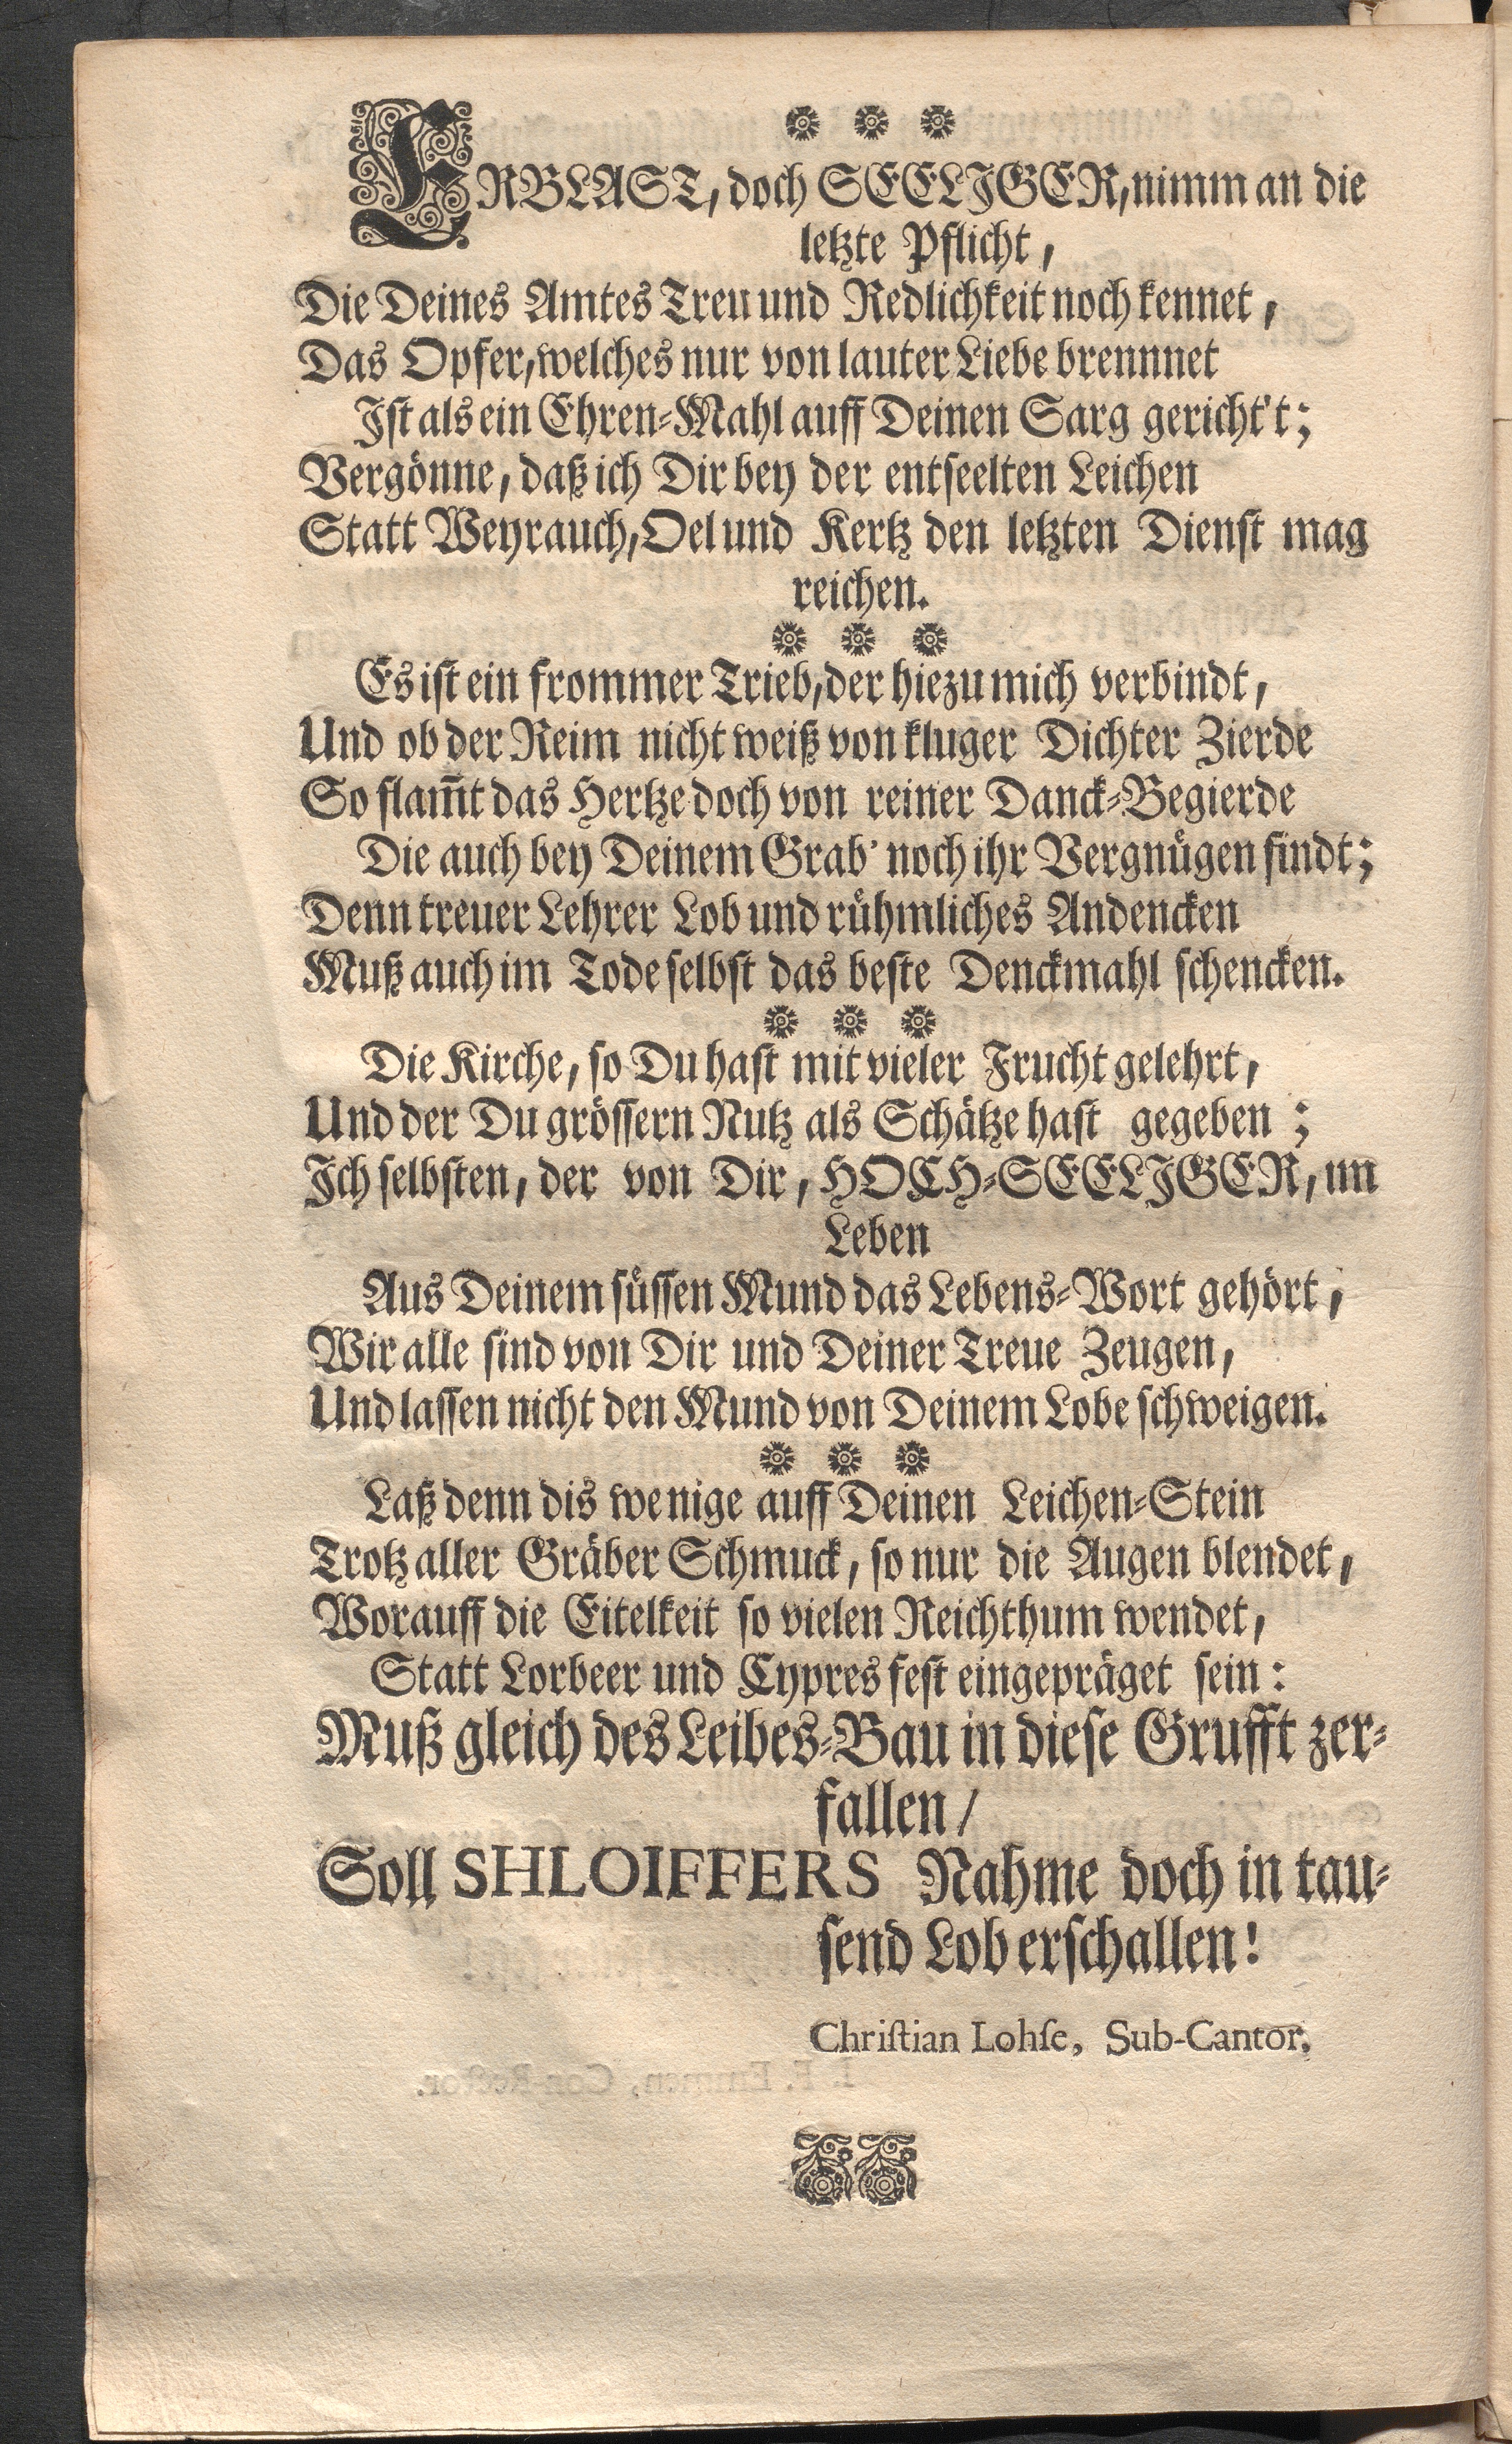 ERBLAST, doch SEELIGER, nimm an die
letzte Pflicht,
Die Deines Amtes Treu und Redlichkeit noch kennet,
Das Opfer, welches nur von lauter Liebe brennnet
Ist als ein Ehren-Mahl auff Deinen Sarg gericht't;
Vergönne, daß ich Dir bey der entseelten Leichen
Statt Weyrauch, Oel und Kertz den letzten Dienst mag
reichen.
Es ist ein frommer Trieb, der hiezu mich verbindt,
Und ob der Reim nicht weiß von kluger Dichter Zierde
So flam̅t das Hertze doch von reiner Danck-Begierde
Die auch bey Deinem Grab' noch ihr Vergnügen findt;
Denn treuer Lehrer Lob und rühmliches Andencken
Muß auch im Tode selbst das beste Denckmahl schencken.
Die Kirche, so Du hast mit vieler Frucht gelehrt,
Und der Du grössern Nutz als Schätze hast gegeben;
Ich selbsten, der von Dir, HOCH-SEELIGER, im
Leben
Aus Deinem süssen Mund das Lebens-Wort gehört,
Wir alle sind von Dir und Deiner Treue Zeugen,
Und lassen nicht den Mund von Deinem Lobe schweigen.
Laß denn dis wenige auff Deinen Leichen-Stein
Trotz aller Gräber Schmuck, so nur die Augen blendet,
Worauff die Eitelkeit so vielen Reichthum wendet,
Statt Lorbeer und Cypres fest eingepräget sein:
Muß gleich des Leibes-Bau in diese Grufft zer-
fallen /
Soll SHLOIFFERS Nahme doch in tau-
send Lob erschallen!
Christian Lohse, Sub-Cantor.